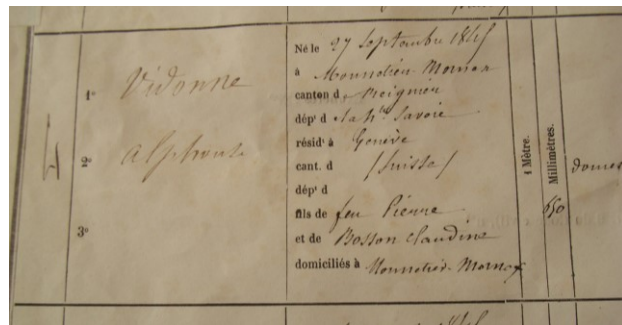 1º Vidonne
2º alphonse
3º
Né le 27 Septembre 1845
à Monnetier-Mornex
canton d Reignier
dép' d la hte Savoie
résid' à Genève
cant. d (Suisse)
dép' d
fils de feu Pierre
et de Bosson Claudine
domiciliés à Monnetier-Mornex
1 Mètre.
Millimètres.
650